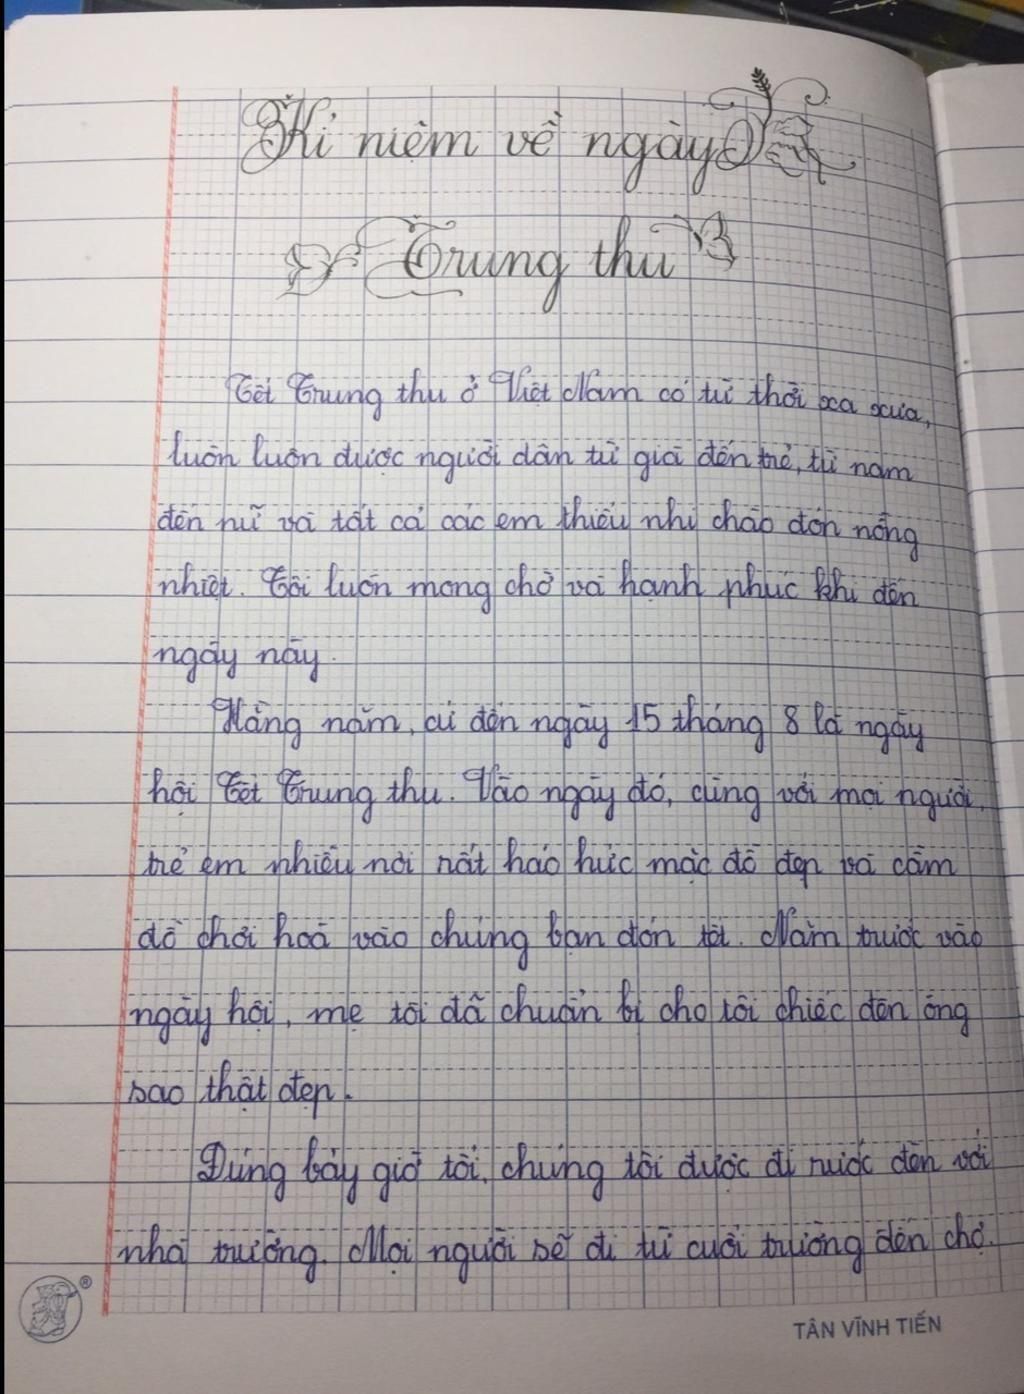 Kỉ niệm về ngày
Trung thu
Tết Trung thu ở Việt Nam có từ thời xa xưa,
luôn luôn được người dân từ già đến trẻ, từ nam
đến nữ và tất cả các em thiếu nhi chào đón nồng
nhiệt. Tôi luôn mong chờ và hạnh phúc khi đến
ngày này.
Hằng năm, cứ đến ngày 15 tháng 8 là ngày
hội Tết Trung thu. Vào ngày đó, cùng với mọi người,
trẻ em nhiều nơi rất háo hức mặc đồ đẹp và cầm
đồ chơi hoà vào chúng bạn đón tết. Năm trước vào
ngày hội, mẹ tôi đã chuẩn bị cho tôi chiếc đèn ông
sao thật đẹp.
Đúng bảy giờ tối, chúng tôi được đi rước đèn với
nhà trường. Mọi người sẽ đi từ cuối trường đến chợ.
TÂN VĨNH TIẾN